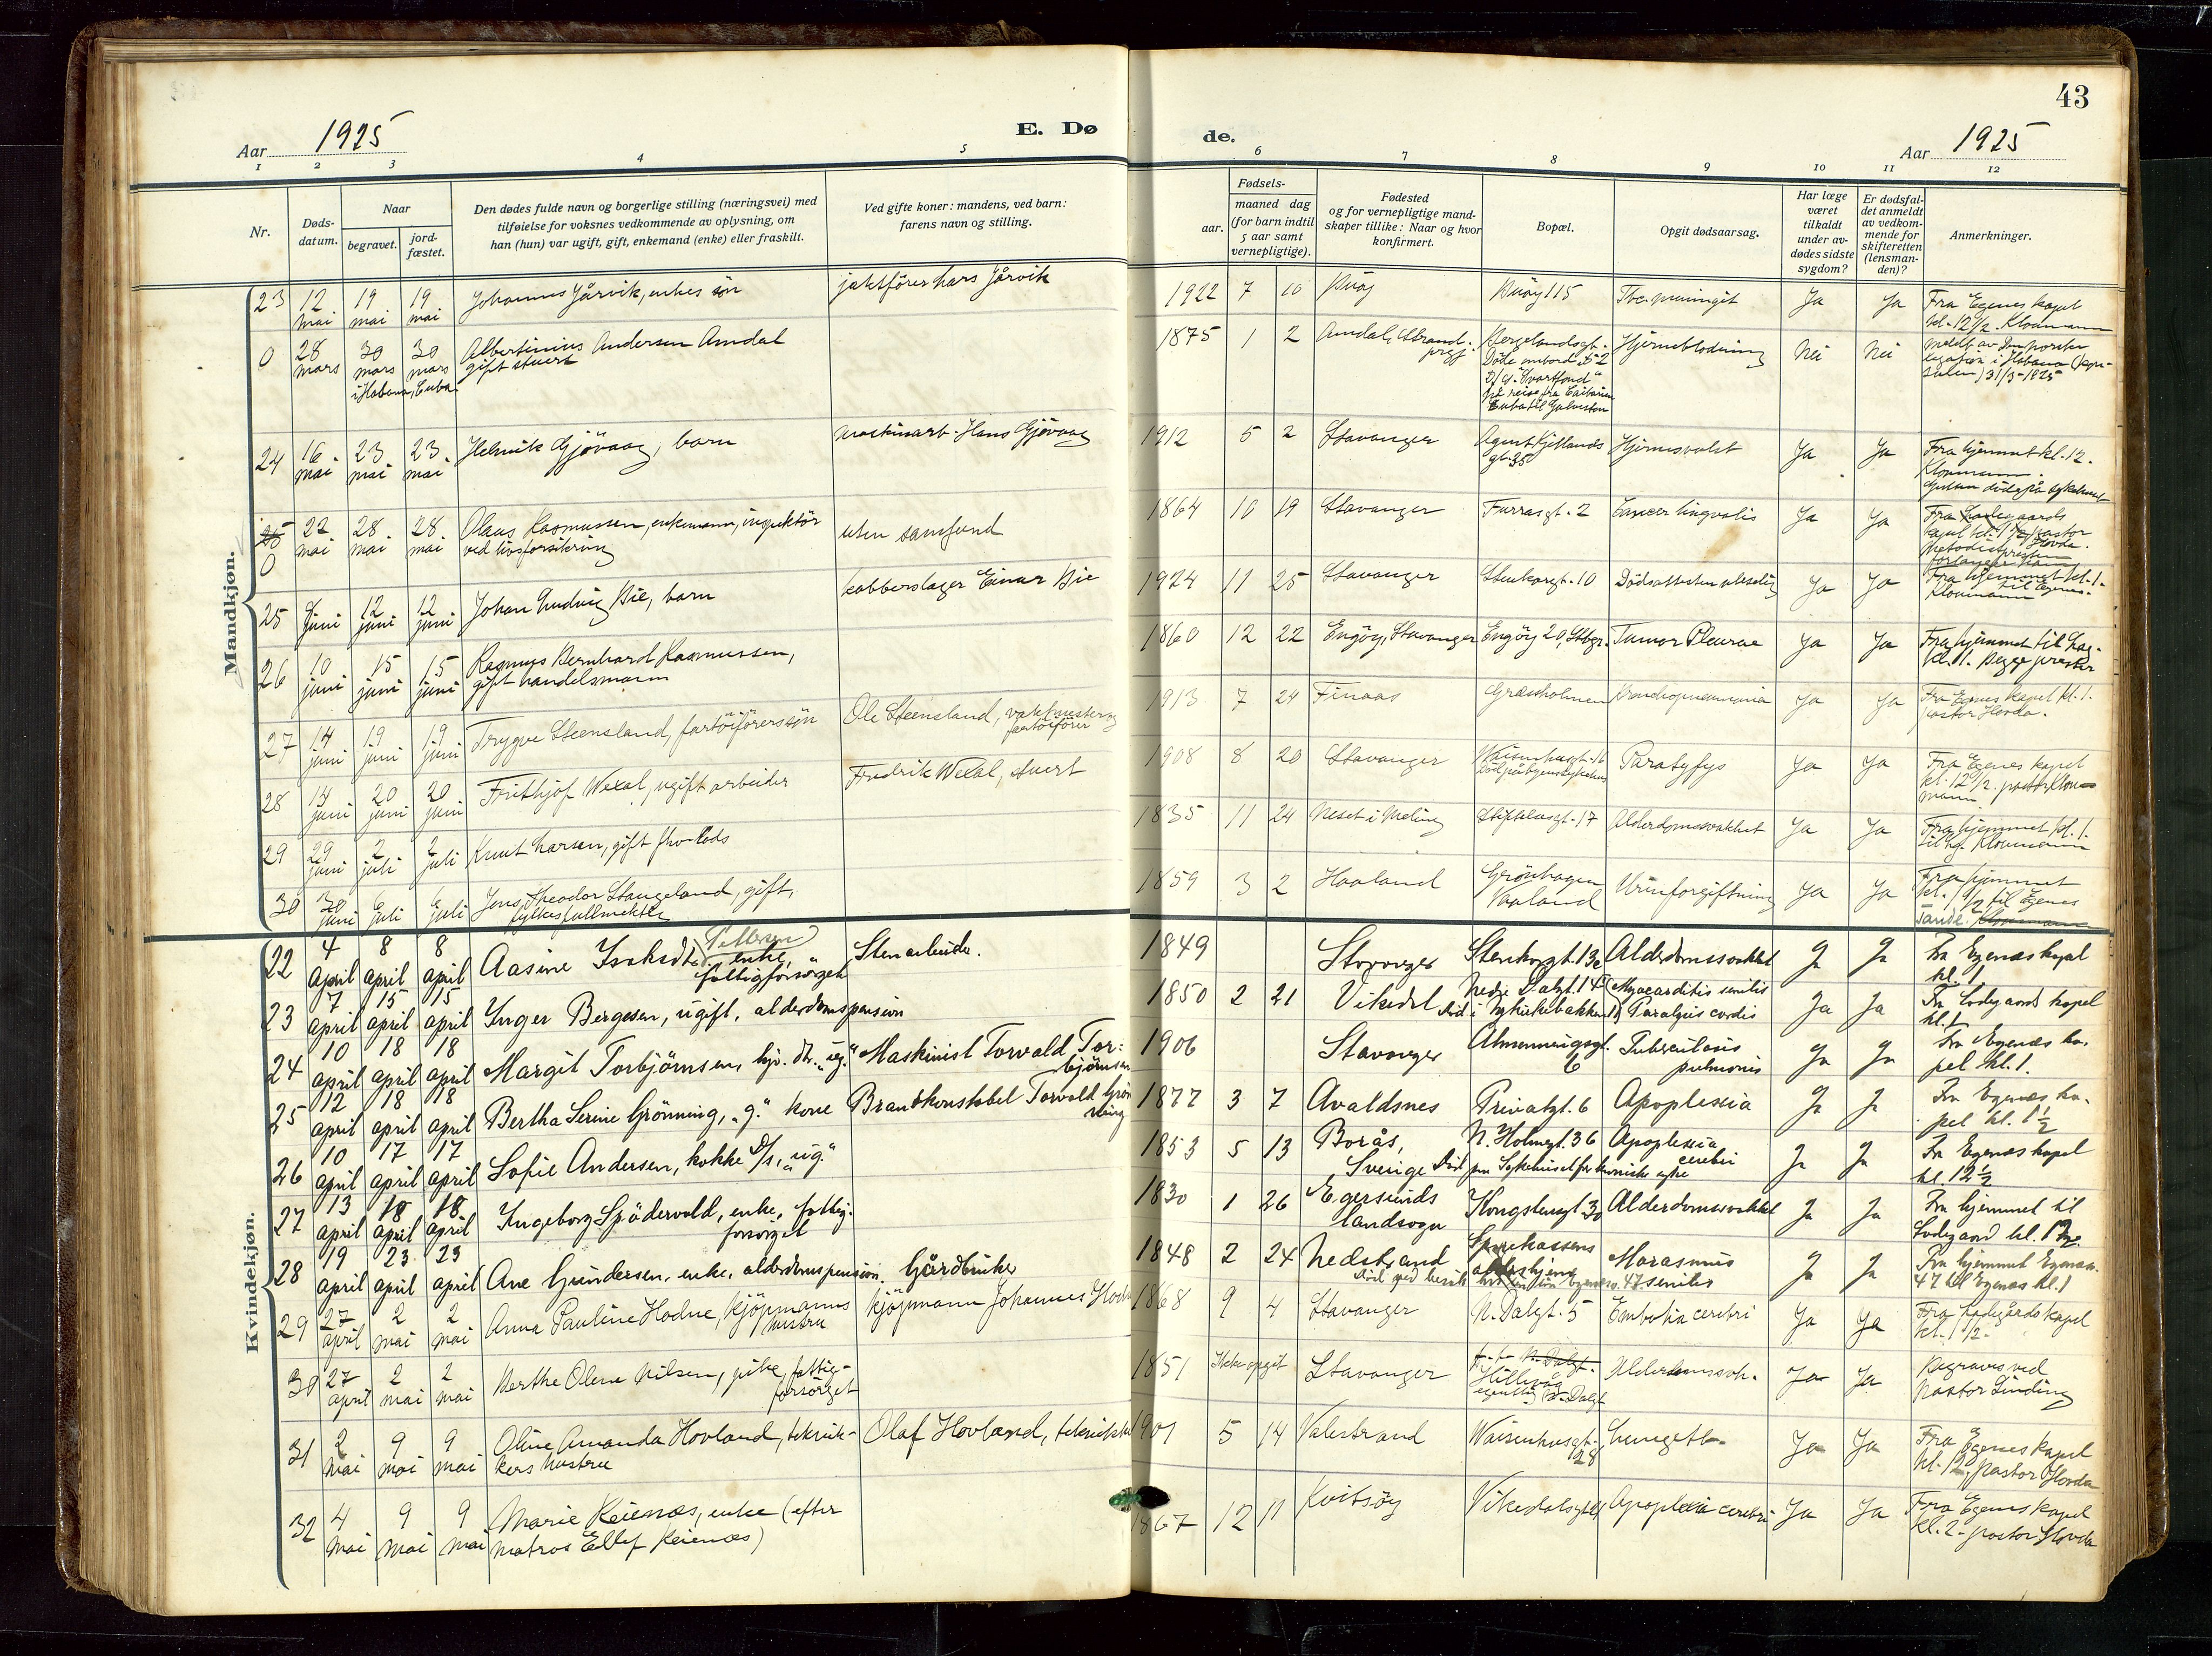 43
Aar 1925
E. Dø
de.
Aar 1925
1 2 3 4 5 6 7 8 9 10 11 12
Nr.
Døds-
datum.
Naar
begravet.
jord-
fæstet.
Den dødes fulde navn og borgerlige stilling (næringsvei) med
tilføielse for voksnes vedkommende av oplysning, om
han (hun) var ugift, gift, enkemand (enke) eller fraskilt.
Ved gifte koner: mandens, ved barn:
farens navn og stilling.
Fødsels-
aar.
maaned dag
(for barn indtil
5 aar samt
vernepligtige).
Fødested
og for vernepligtige mand-
skaper tillike: Naar og hvor
konfirmert.
Bopæl.
Opgit dødsaarsag.
Har læge
været
tilkaldt
under av-
dødes sidste
sygdom?
Er dødsfal-
det anmeldt
av vedkom-
mende for
skifteretten
(lensman-
den)?
Anmerkninger.
Mandkjøn.
23 12 mai 19 mai 19 mai Johannes Jårvik, enkes søn jaktfører Lars Jårvik 1922 7 10 Buøy Buøy 115 Tbc. meningit Ja Ja Fra Egenes kapel
kl. 12½. Kloumann
0 28 mars 30 mars 30 mars Albertinius Andersen Amdal 1875 1 2 Amdal, Strand Bergelandsgt. Hjerneblødning Nei Nei
gift stuert
i Habana, Cuba
Døde ombord
på reise fra
Cuba til Galveston
31/3-1925
24 16 mai 23 mai 23 mai Helmik Gjøvaag, barn maskinarb. Hans Gjøvaag 1912 5 2 Stavanger Agent Kjellands
gt. 35 Hjernesvulst Ja Ja Fra hjemmet kl. 12.
Kloumann.
25 0 22 mai 28 mai 28 mai Olaus Rasmussen, enkemann, inspektör
ved livsforsikring uten samfund 1864 10 19 Stavanger Furrasgt. 2 Cancer lingvalis Ja Ja Fra Ladegaards
kapel
25 juni 12 juni 12 juni Johan Ludvig Bie, barn kobberslager Einar Bie 1924 11 25 Stavanger Stenkargt. 10 Ja Ja Fra hjemmet kl. 1.
til Egenes.
Kloumann
26 10 juni 15 juni 15 juni Rasmus Bernhard Rasmussen,
gift handelsmann 1860 12 22 Engøy, Stavanger Engøy 20, Stbgr. Tumor Pleurae Ja Ja Fra hjemmet til Lag.
kl. 11. Begge prester
27 14 juni 19 juni 19 juni Trygve Steensland, fartöiförers søn Ole Steensland, vaktmester og
fartöiförer 1913 7 24 Finaas Græsholmen Bronchopneumonia Ja Ja Fra Egenes kapel kl. 1.
pastor Hovda.
28 14 juni 20 juni 20 juni Frithjof Wexal, ugift arbeider Fredrik Wexal, stuert 1908 8 20 Stavanger Waisenhusgt. 16 Paratyfus Ja Ja Fra Egenes kapel
kl. 12½. pastor Klou-
mann
29 29 juni 2 juli 2 juli Knut Larsen, gift fhv. lods 1835 11 24 Neset i Meling 17 Alderdomssvakhet Ja Ja Fra hjemmet kl. 1.
til Lg. Kloumann
30 30 juni 6 juli 6 juli Jens Theodor Stangeland, gift,
fylkesfullmektig 1859 3 2 Haaland Grönhagen
Vaaland Urinforgiftning Ja Ja Fra hjemmet
kl. 1½ til Egenes
Tande. Kloumann
Kvindekjøn.
22 4 april 8 april 8 april Aasine Isaksdtr. Pettersen enke,
fattigforsørget Stenarbeider. 1849 Stavanger Stenkargt. 13c Alderdomssvakhet Ja Ja Fra Egenæs kapel
kl. 1
23 7 april 15 april 15 april Inger Bergesen, ugift, alderdomspension 1850 2 21 Vikedal Nedre Dalgt. 14
död i Nykirkebakken Myocarditis senilis
Paralysis cordis Ja Ja Fra Ladegaards kapel
kl. 1
24 10 april 18 april 18 april Margit Torbjörnsen, hjv. dtr. "ug." Maskinist Torvald Tor-
björnsen 1906 Stavanger Almenningsgt.
6 Tuberculosis
pulmonis Ja Ja Fra Egenæs ka-
pel kl. 1.
25 12 april 18 april 18 april Bertha Serine Grönning, "g." kone Brandkonstabel Torvald Grön-
ning 1877 3 7 Avaldsnes Privatgt. 6 Apoplexia Ja Ja Fra Egenæs ka-
pel kl. 1½
26 10 april 17 april 17 april Sofie Andersen, kokke D/s, "ug." 1853 5 13 Borås,
Sverige N. Holmegt. 36
Död paa Sykehuset for kroniske syke Apoplexia
cerebri Ja Ja Fra Egenæs kapel
kl. 12½
27 13 april 18 april 18 april Ingeborg Spödervold, enke, fattig-
forsörget 1830 1 26 Egersunds
landsogn Kongstensgt. 30 Alderdomssvakhet Ja Ja Fra hjemmet til
Ladegaard kl. 12
28 19 april 23 april 23 april Ane Gundersen, enke, alderdomspension. Gårdbruker 1848 2 24 Nedstrand Sparekassens
aldershjem
Marasmus
senilis Ja Ja Fra hjemmet Egenæs.
47 til Egenæs kl. 1
29 27 april 2 mai 2 mai Anna Pauline Hodne, kjöpmanns
hustru kjöpmann Johannes Hodne 1868 9 4 Stavanger N. Dalgt. 5 Embolia cerebri Ja Ja Fra Ladegårds kapel
kl. 1½.
30 27 april 2 mai 2 mai Berthe Olene Nilsen, pike, fattig-
forsørget 1851 Ikke opgit Stavanger N. Dalgt.
Hillevåg
egentlig N. Dalgt Alderdomssvh. Ja Ja Begraves ved
pastor Linding
31 2 mai 9 mai 9 mai Oline Amanda Hovland, teknik-
kers hustru Olaf Hovland, tekniker 1901 5 14 Valestrand Waisenhusgt.
28 Lungetb. Ja Ja Fra Egenes kapel
kl. 12, pastor Hovda
32 4 mai 9 mai 9 mai Marie Reienæs, enke (efter
matros Ellef Reienæs) 1867 12 11 Kvitsöy Vikedalsgt. Apoplexia cerebri Ja Ja Fra Egenes kapel
kl. 2 - pastor Hovda